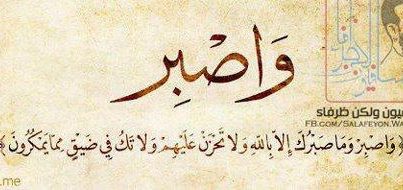 وَاصْبِرْ
يون ولكن ظرفاء
FB.COM/SALAFEYON.WA
﴿وَاصْبِرْ وَمَا صَبْرُكَ إِلَّا بِاللَّهِ وَلَا تَحْزَنْ عَلَيْهِمْ وَلَا تَكُ فِي ضَيْقٍ مِمَّا يَمْكُرُونَ﴾
.me